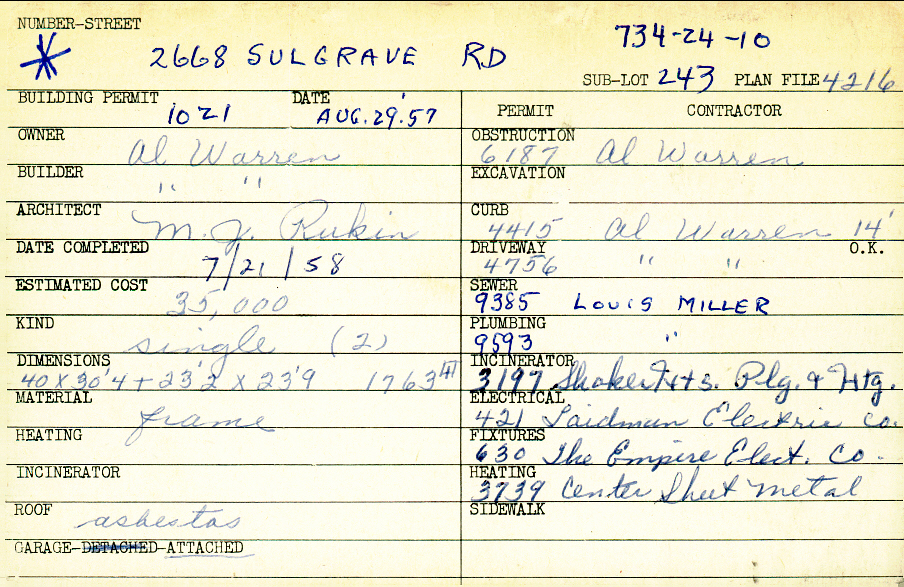 NUMBER-STREET
* 2668 SULGRAVE RD 734-24-10
SUB-LOT 243 PLAN FILE 4216
BUILDING PERMIT 1021 DATE AUG. 29. 57
OWNER Al Warren
BUILDER " "
ARCHITECT M. J. Rukin
DATE COMPLETED 7/21/58
ESTIMATED COST 35,000
KIND single (2)
DIMENSIONS 40 X 30'4 + 23'2 X 23'9 1763
MATERIAL frame
HEATING
INCINERATOR
ROOF asbestos
GARAGE-DETACHED-ATTACHED
PERMIT CONTRACTOR
OBSTRUCTION 6187 Al Warren
EXCAVATION
CURB 4415 Al Warren 14'
DRIVEWAY 4756 " " O.K.
SEWER 9385 LOUIS MILLER
PLUMBING 9593 "
INCINERATOR 3197 Shaker Hts. Plg. & Htg.
ELECTRICAL 421 Laidman Electric Co.
FIXTURES 630 The Empire Elect. Co.
HEATING 3739 Center Sheet Metal
SIDEWALK